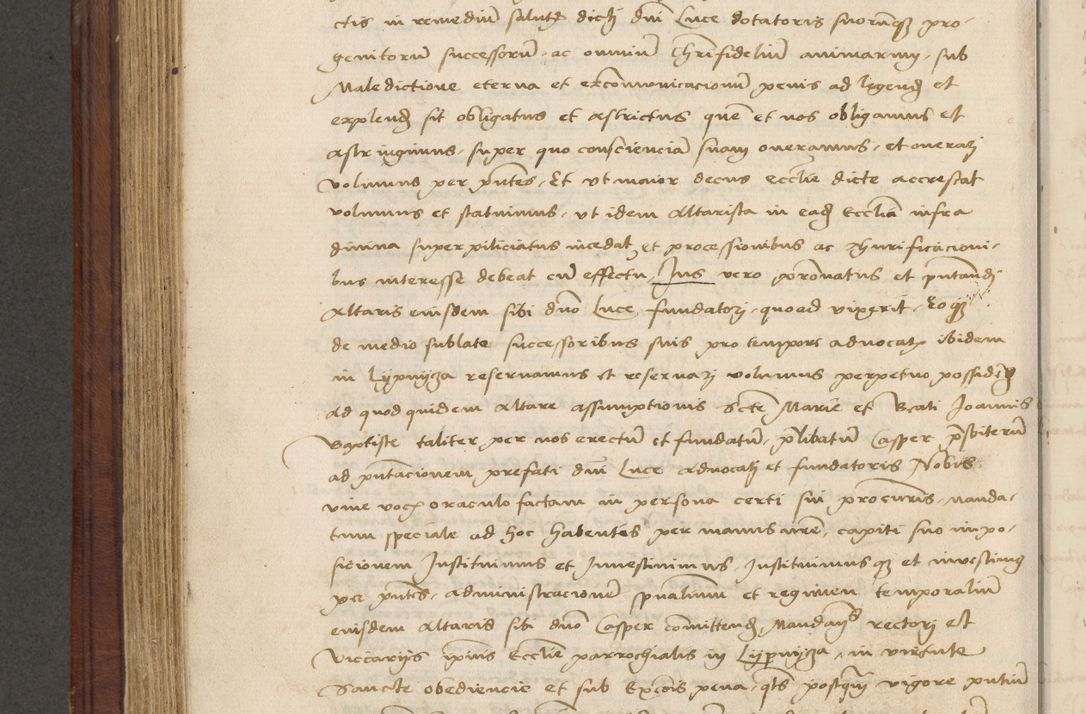 ctis in remediũ salutꝭ dictj dñi Luce dotatoris suorũqꝫ pro-
genitorũ successorũ ac omniũ Chrifideliũ animarum, sub
Maledictione eterna et excõmunicacionũ penis ad legendꝭ et
explendꝭ sit obligatus et astrictus quẽ et nos obligamus et
astringimus, super quo conscienciã suam oneramus, et onerarj
volumus per pñtes, Et vt maior decus eccĺie dicte accrescat
volumus et statuimus, vt idem altarista in eadꝭ Eccĺia infra
diuina superpiliciatus incedat et processionibus ac thurificacioni-
bus interesse debeat cũ effectu, Jus vero patronatus et pñtandj
altaris eiusdem sibi dño Luce fundatorj quoad vixerit, Eo qꝫ
de medio sublate successoribus suis pro tempore aduocatꝭ ibidem
in Lypnycza reseruamus et reseruarj volumus perpetuo possidẽdꝭ
ad quod quidem altare assumptionis Scte Marie et Beati Joannis
Baptiste taliter per nos erectũ et fundatũ, p̃libatũ Casper p̃sbiterũ
ad pñtacionem prefati dñi Luce aduocatj et fundatoris Nobis
viue vocꝭ oraculo factam in persona certi sui procuris, manda-
tum speciale ad hoc habentes per manus nr̃e, capiti suo impo-
sicionem Instituimus et Inuestiuimus, Instituimusqꝫ et inuestimꝰ
per pñtes, administracionẽ spũalium et regimen temporaliũ
eiusdem altaris sibi dño Casper cõmittendꝭ Mandamꝰ rectorj et
Viccarijs ipsius Eccĺie parrochialis in Lypnycza, in virtute
Sancte obediencie et sub Excõis pena, qts postqꝫ vigore pñtiũ